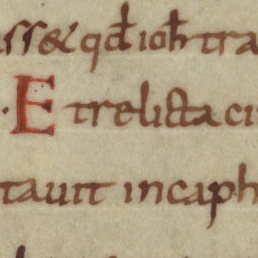 ss& qđ ioħ tra
· E t relicta ci
tauit in caph